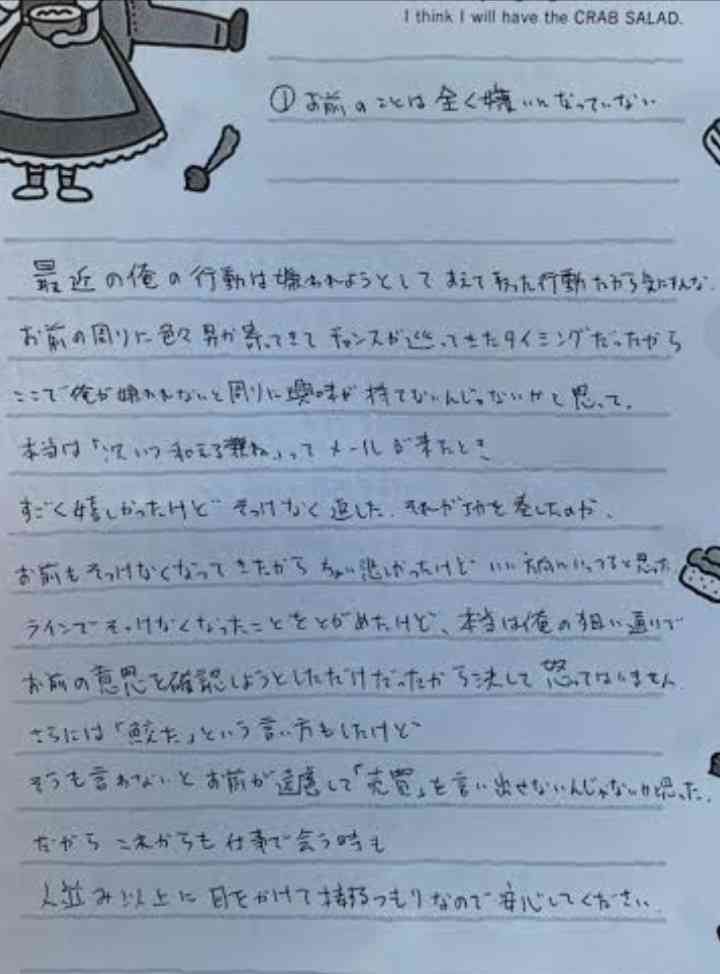 I think I will have the CRAB SALAD.
①お前のことは全く嫌いになっていない
最近の俺の行動は嫌われようとしてあえて取った行動だから気にすんな.
お前の周りに色々男が寄ってきてチャンスが巡ってきたタイミングだったから
ここで俺が嫌われないと周りに興味が持てないんじゃないかと思って.
本当は「次いつ和える ね」ってメールが来たとき
すごく嬉しかったけどそっけなく返した. それが功を奏したのか、
お前もそっけなくなってきたからちょい悲しかったけどいい方向にいってると思った
ラインでそっけなくなったことをとがめたけど、本当は俺の狙い通りで
お前の意思を確認しようとしただけだったから決して怒ってはいません
さらには「 た」という言い方もしたけど
そうも言わないとお前が遠慮して「売買」を言い出せないんじゃないかと思った.
だからこれからも仕事で会う時も
人並み以上に目をかけて つもりなので安心してください.